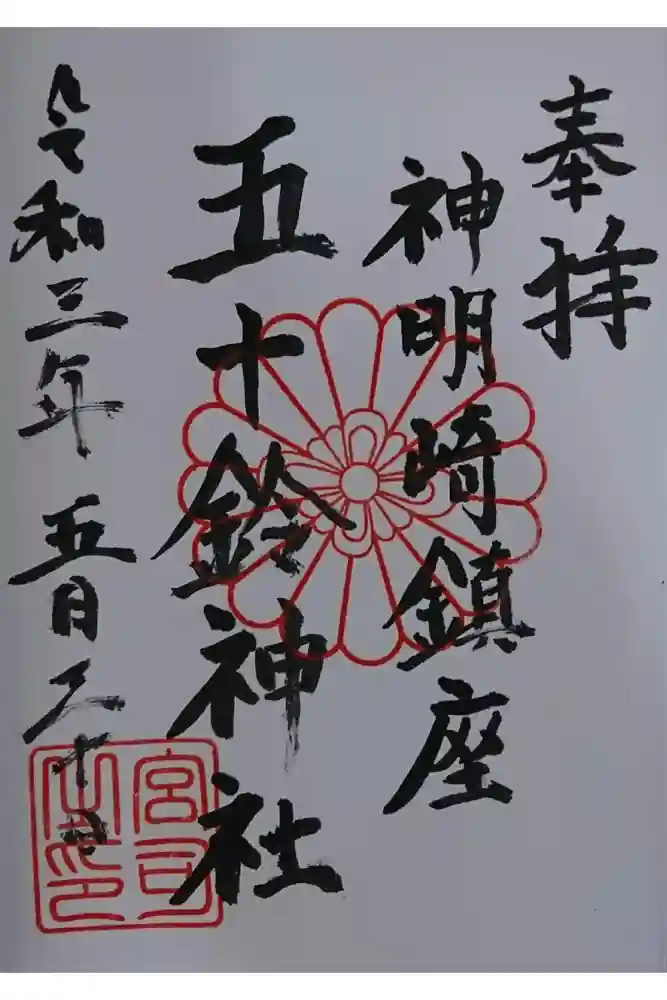 奉拝
神明崎鎮座
五十鈴神社
令和三年五月三十日
宮司之印